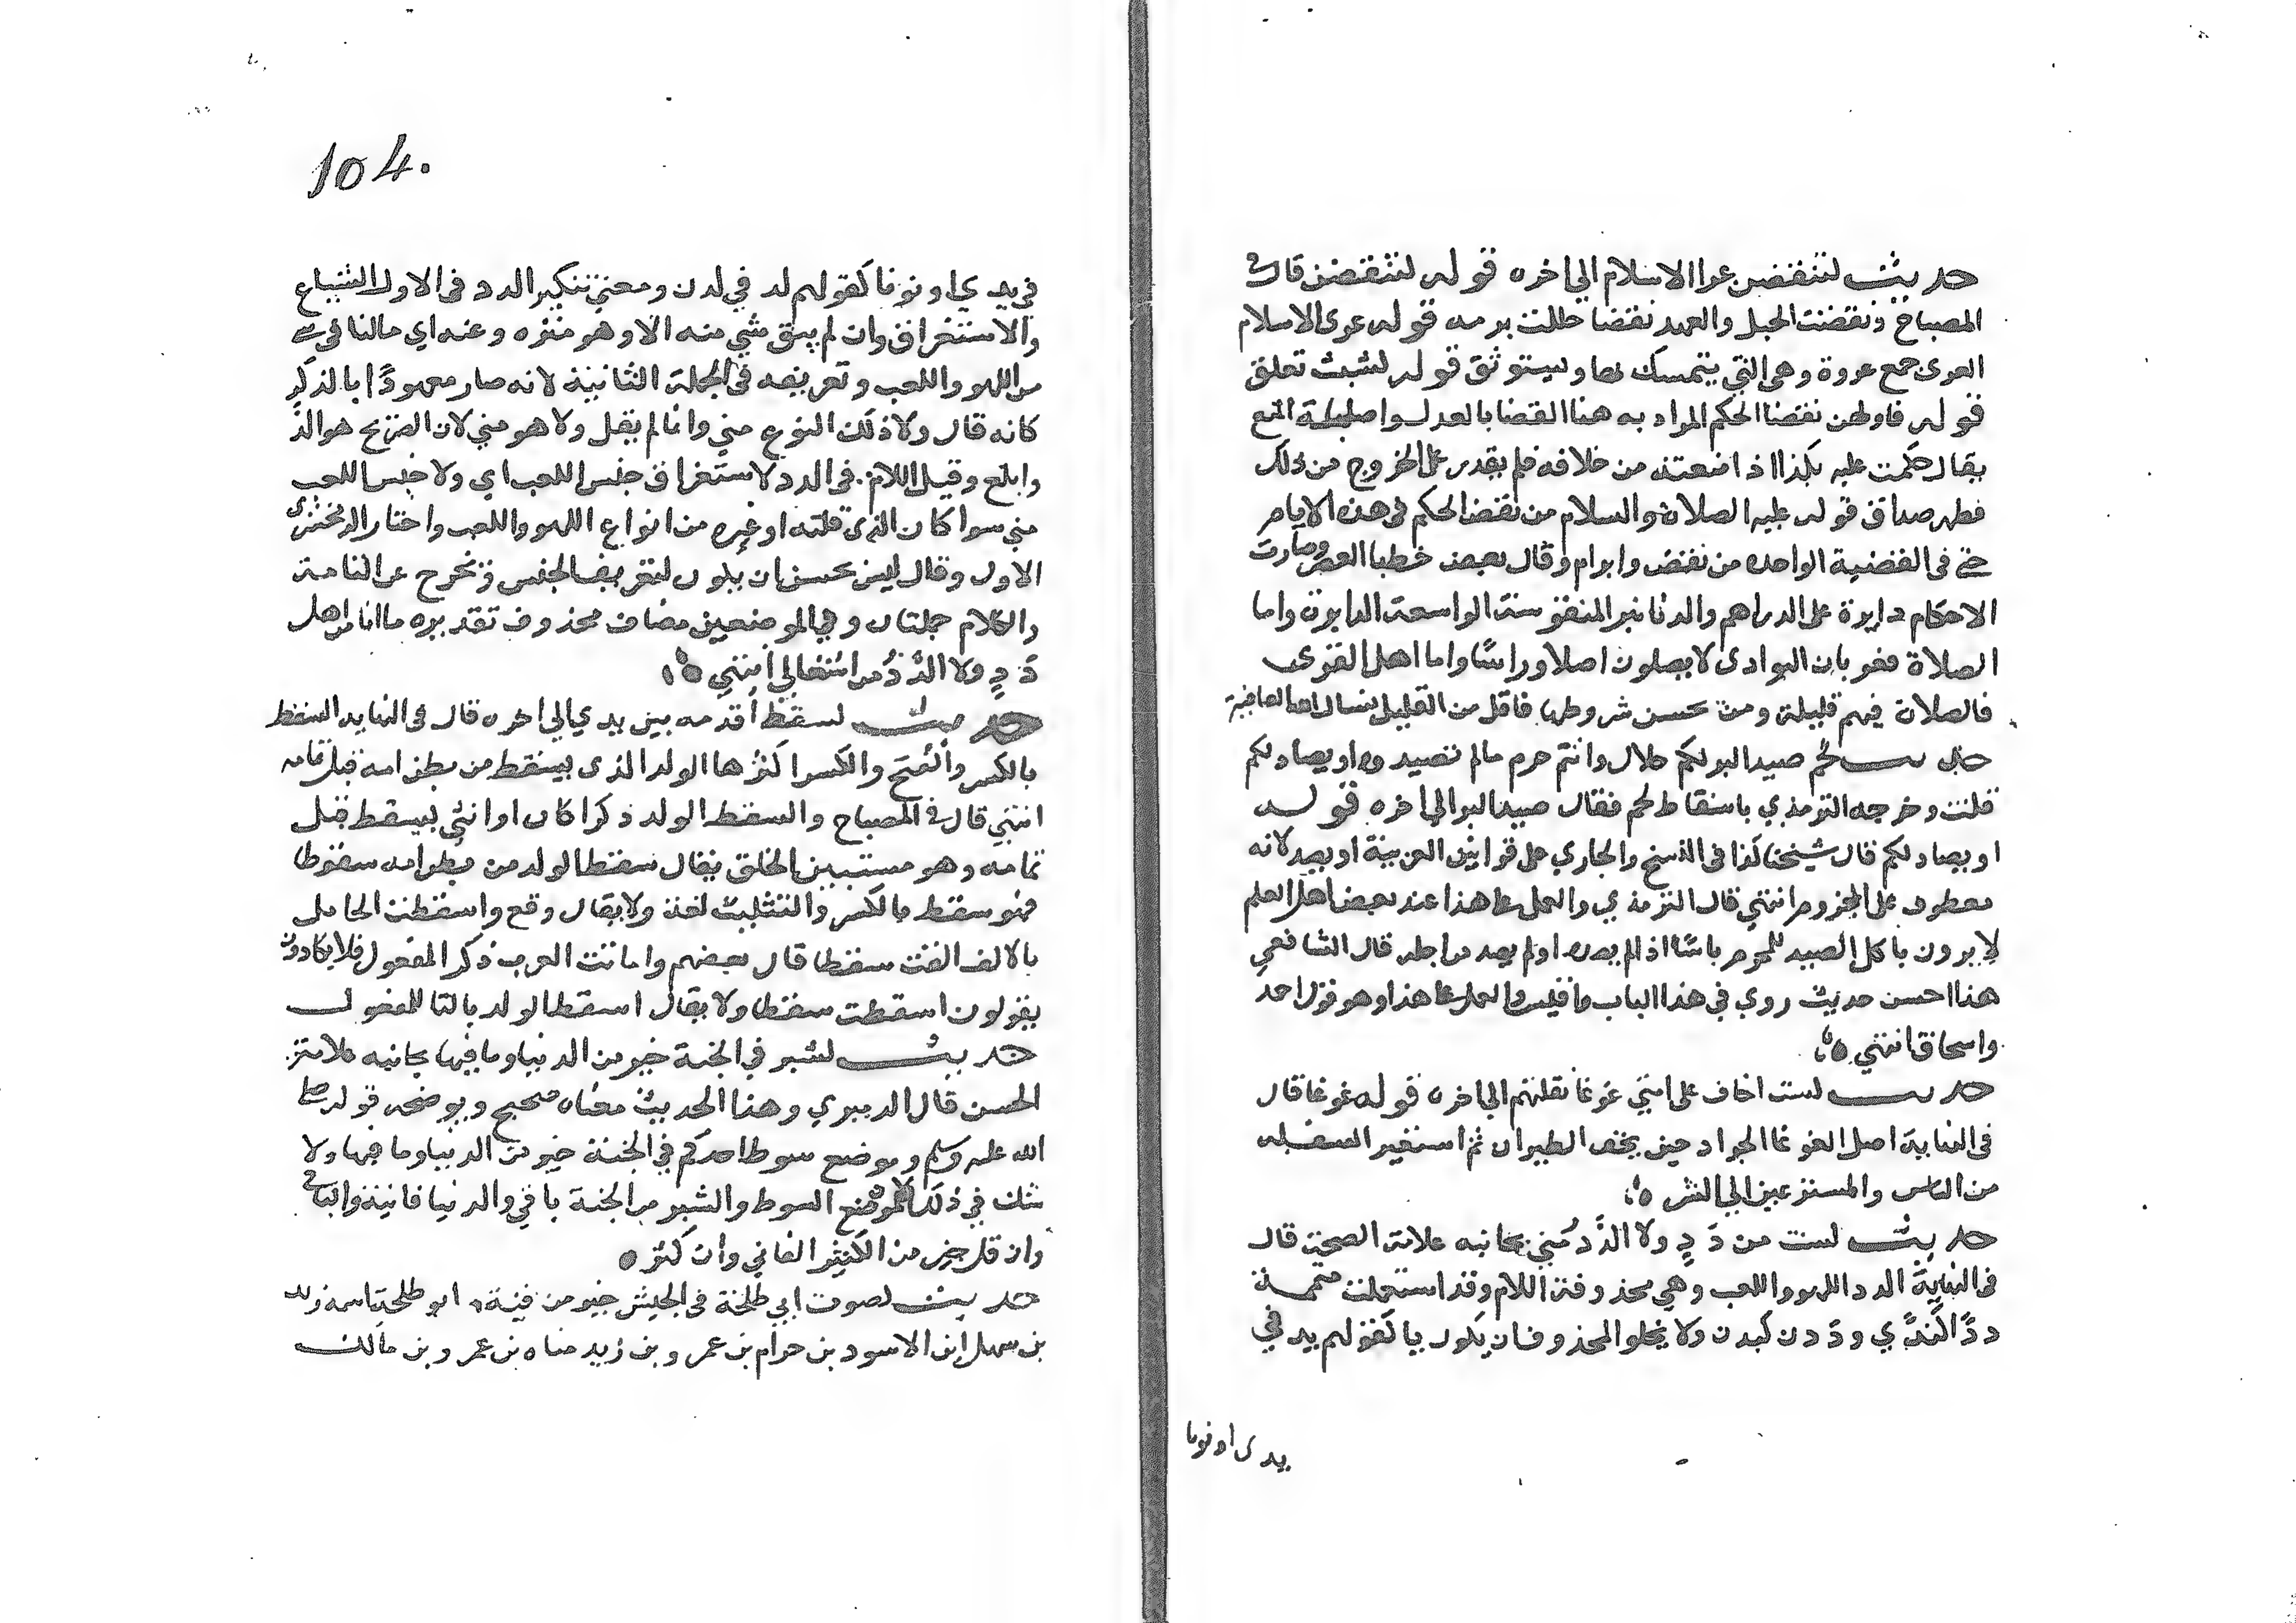 حديث لتنقضن عرا الاسلام الى اخره قوله لتنقضن قال في
المصباح نقضت الحبل والعهد نقضا حللت برمه قوله عرى الاسلام
العرى جمع عروة وهي التي يتمسك بها ويستوثق قوله تشبث تعلق
قوله فاولهن نقضا الحكم المراد به هنا القضا بالعدل واصله المنع
يقال حكمت عليه بكذا اذا منعته من خلافه فلم يقدر على الخروج من ذلك
فظهر صداق قوله عليه الصلاة والسلام من نقض الحكم في هذه الايام
حتى في القضية الواحده من نقض وابرام وقال بعض خطبا العصر وصارت
الاحكام دايرة على الدراهم والدنانير المنقوسة الواسعة الدايرة واما
الصلاة فغربان البوادى لا يصلون اصلا وراسًا واما اهل القرى
فالصلاة فيهم قليلة ومن يحسن شروطها فاقل من القليل نسال الله العافية
حديث لحم صيد البر لكم حلال وانتم حرم مالم تصيدوه او يصاد لكم
قلت وخرجه الترمذي باسقاط لحم فقال صيد البر الى اخره قوله
او يصاد لكم قال شيخنا كذا في النسخ والجاري على قوانين العربية او يصد لانه
معطوف على المجزوم انتهي قال الترمذي والعمل على هذا عند بعض اهل العلم
لا يرون باكل الصيد للمحرم باسًا اذا لم يصده او لم يصد من اجله قال الشافعي
هذا احسن حديث روي في هذا الباب واقيس والعمل على هذا وهو قول احمد
واسحاق انتهي ه
حديث لست اخاف على امتي غوغا تقتلهم الى اخره قوله غوغا قال
في النهاية اصل الغوغا الجراد حين يخف الطيران ثم استعير للسفلة
من الناس والمتسرعين الى الشر ه
حديث لست من دَدٍ ولا الدَّدُ مني بجانبه علامة الصحة قال
في النهاية الدد اللهو واللعب وهي محذوفة اللام وقد استعملت متممة
ددًا كندًي وددن كبدن ولا يخلوا المحذوف ان يكون يا كقولهم يد في
يدى او نونا
104.
في يدي او نونا كقولهم لد في لدن ومعنى تنكير الدد في الاول الشياع
والاستغراق وان لم يبق شي منه الا وهو منزه وعنه اي ما انا في شي
من اللهو واللعب وتعريفه في الجملة الثانية لانه صار معهودًا بالذكر
كانه قال ولا ذلك النوع مني وانما لم يقل ولا هو مني لان الصريح هو الذ
وابلغ وقيل اللام في الدد لاستغراق جنس اللعب اي ولا جنس اللعب
مني سوا كان الذي قلته او غيره من انواع اللهو واللعب واختار الزمخشري
الاول وقال ليس يحسن ان يكون لتعريف الجنس وتخرج عن التامة
والكلام جملتان وفي الموضعين مضاف محذوف تقديره ما انا من اهل
دَدٍ ولا الدَّدُ من اشغالي انتهي ه
حديث لسقط اقدمه بين يدي الى اخره قال في النهايه السقط
بالكسر والفتح والكسرا كثرها الولد الذي يسقط من بطن امه قبل تمامه
انتهي قال في المصباح والسقط الولد ذكرا كان او انثي يسقط قبل
تمامه وهو مستبين الخلق يقال سقط الولد من بطن امه سقوطا
فهو سقط بالكسر والتثليث لغة ولا يقال وقع واسقطت الحامل
بالالف القت سقطا قال بعضهم واماتت العرب ذكر المفعول فلا يكادون
يقولون اسقطت سقطا ولا يقال اسقط الولد بالبنا للمفعول
حديث لشبر في الجنة خير من الدنيا وما فيها بجانبه علامة
الحسن قال الدميري وهذا الحديث معناه صحيح ويوضحه قوله صلى
الله عليه وسلم وموضع سوط احدكم في الجنة خير من الدنيا وما فيها ولا
شك في ذلك لان موضع السوط والشبر من الجنة باقي والدنيا فانية والباقي
وان قل خير من الكثير الفاني وان كثر ه
حديث لصوت ابي طلحة في الجيش خير من فية ه ابو طلحة اسمه زيد
بن سهل ابن الاسود بن حرام بن عمرو بن زيد مناه بن عمرو بن مالك